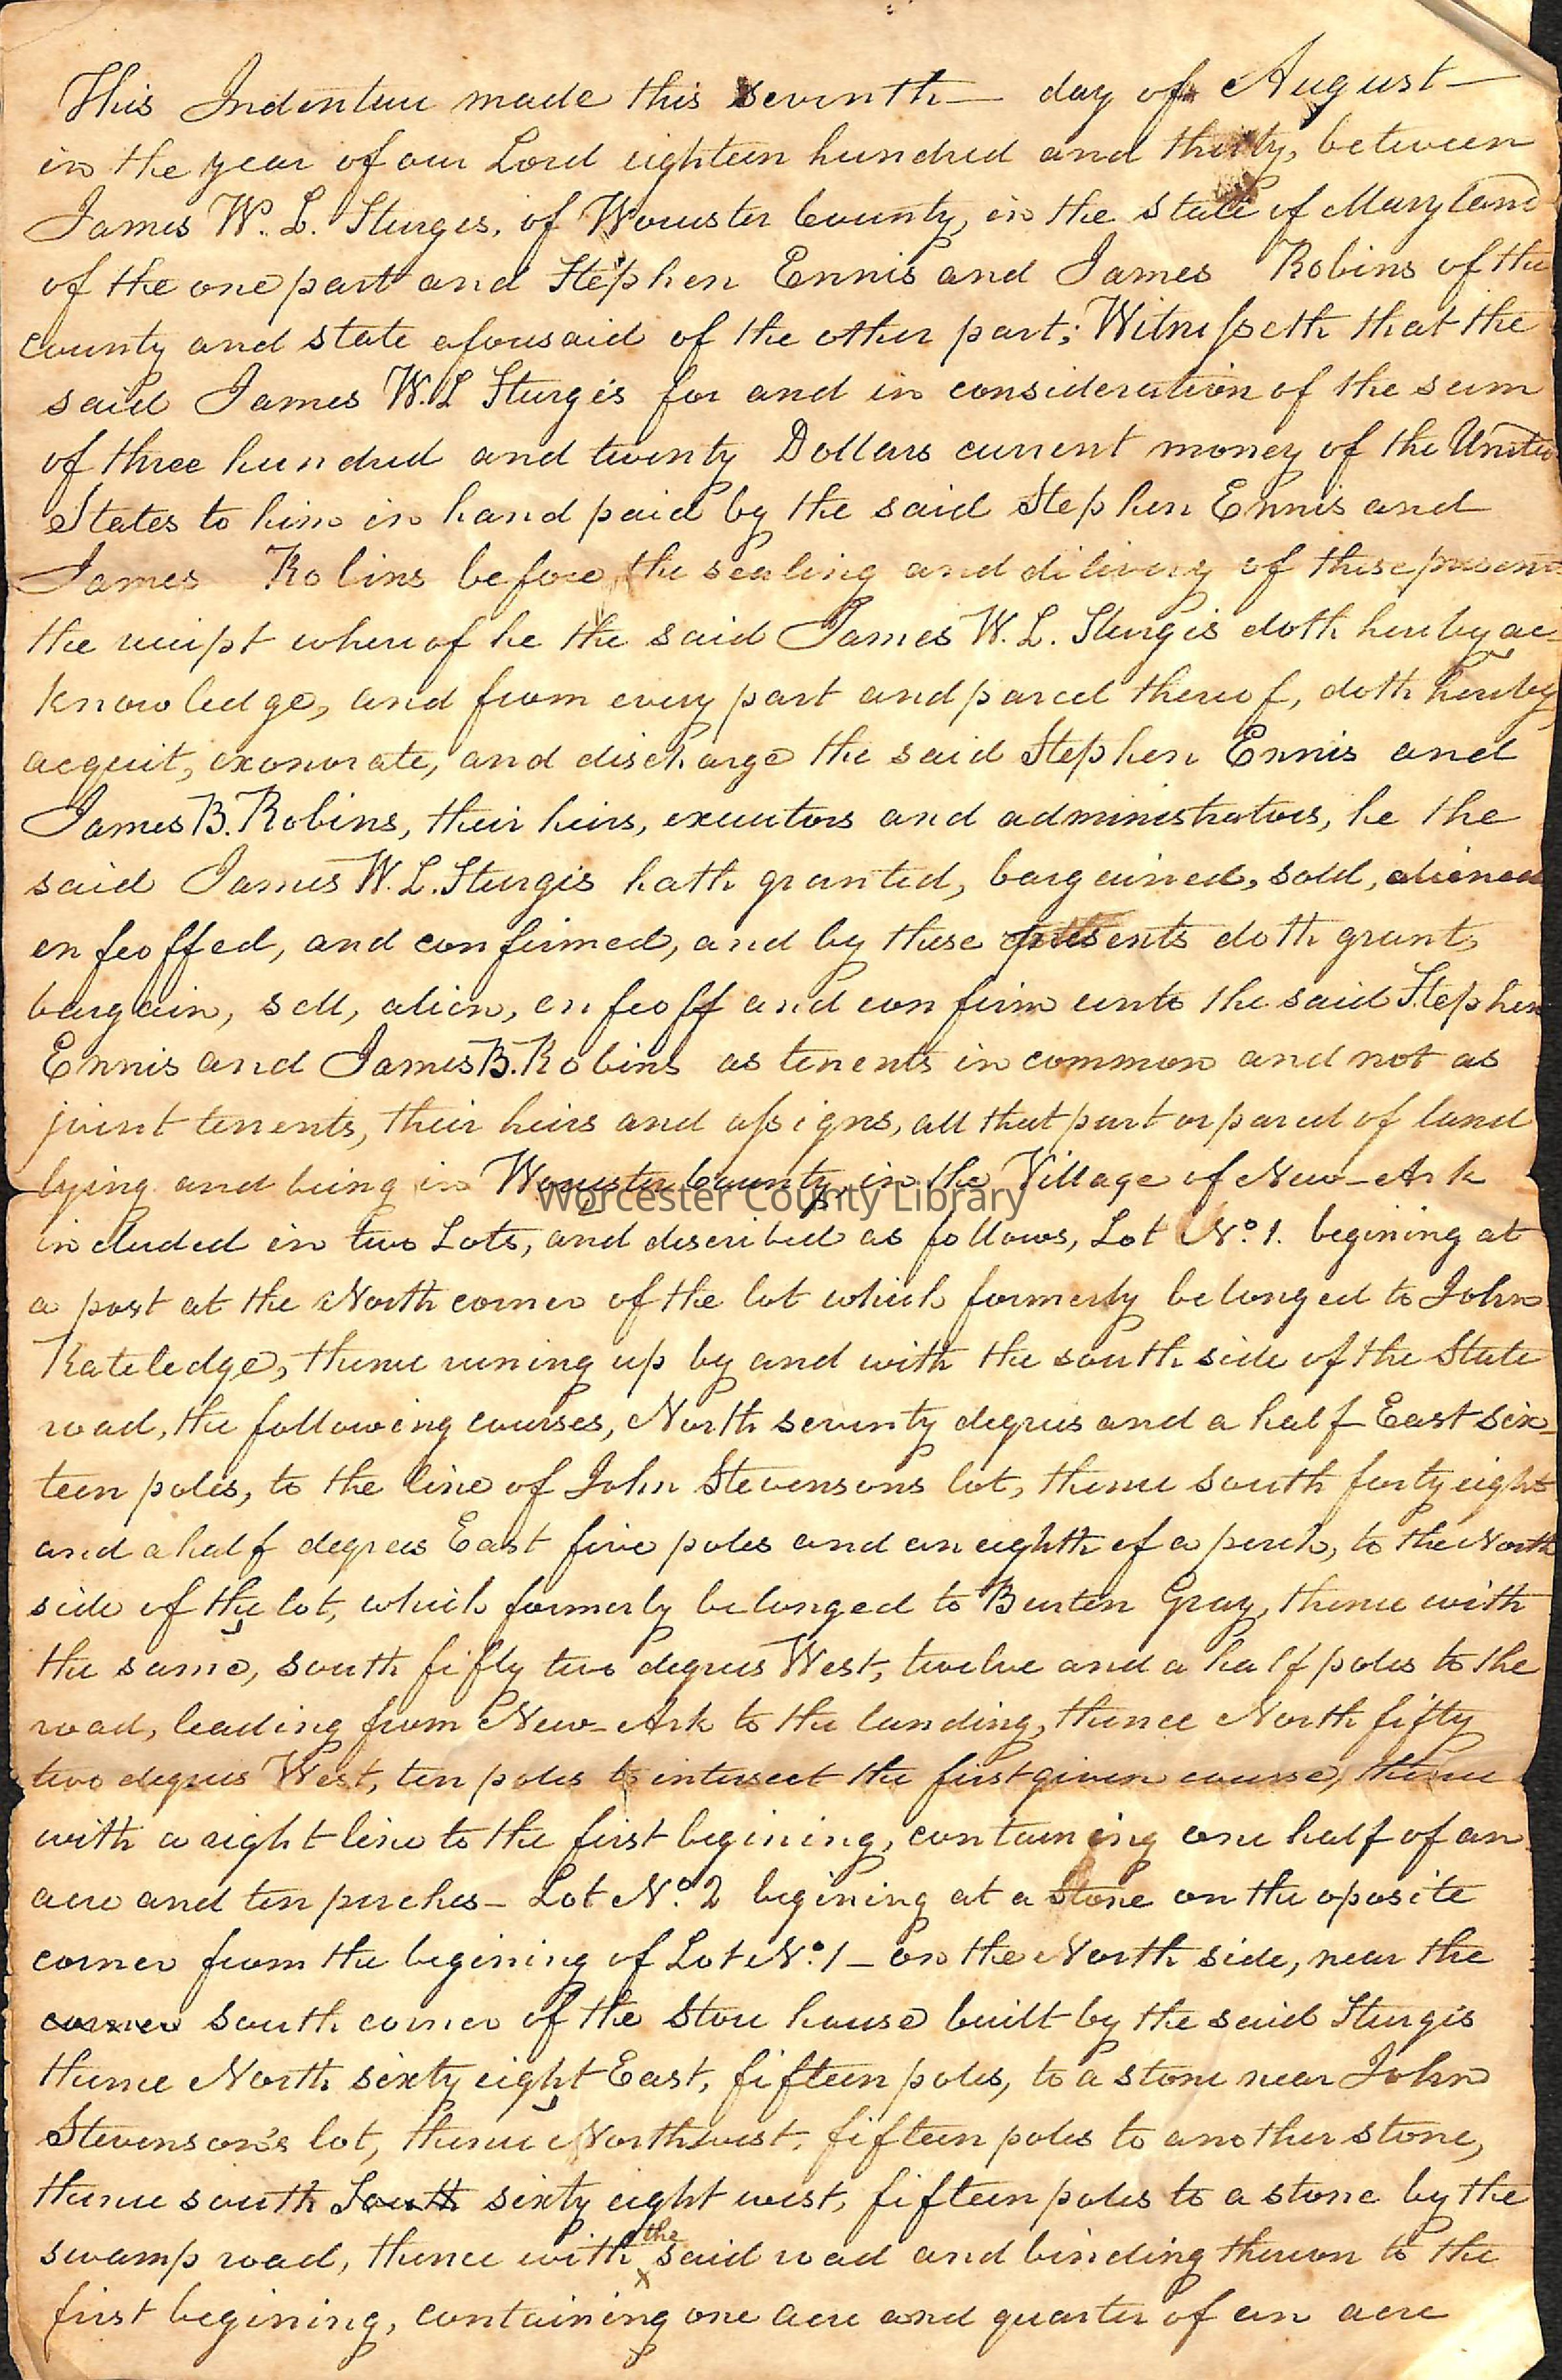 This Indenture made this seventh — day of August —
in the year of our Lord eighteen hundred and thirty, between
James W. L. Sturges, of Worcester County, in the state of Maryland
of the one part and Stephen Ennis and James Robins of the
county and state aforesaid of the other part; Witnesseth that the
said James W. L Sturgis for and in consideration of the sum
of three hundred and twenty Dollars current money of the United
States to him in hand paid by the said Stephen Ennis and
James Robins before the sealing and delivery of these present
the receipt whereof he the said James W. L. Sturgis doth hereby ac-
knowledge, and from every part and parcel thereof, doth hereby
acquit, exonorate, and discharge the said Stephen Ennis and
James B. Robins, their heirs, executors and administrators, he the
said James W. L. Sturgis hath granted, bargained, sold, aliened
enfeoffed, and confirmed, and by these presents doth grant,
bargain, sell, alien, enfeoff and confirm unto the said Stephen
Ennis and James B. Robins as tenents in common and not as
joint tenents, their heirs and assigns, all that part or parcel of land
lying and being in Worcester County, in the Village of New-Ark
Worcester County Library
included in two Lots, and described as follows, Lot No. 1. begining at
a post at the North corner of the lot which formerly belonged to John
Rateledge, thence runing up by and with the south side of the State
road, the following courses, North seventy degrees and a half East six-
teen poles, to the line of John Stevensons lot, thence south forty eight
and a half degrees East five poles and an eighth of a perch, to the North
side of the lot, which formerly belonged to Burten Gray, thence with
the same, south fifty two degrees West, twelve and a half poles to the
road, leading from New-Ark to the landing, thence North fifty
two degrees West, ten poles to intersect the first given course, thence
with a right line to the first begining, containing one half of an
acre and ten perches — Lot No. 2 begining at a Stone on the oposite
corner from the begining of Lot No. 1 — on the North side, near the
corner south corner of the Store house built by the said Sturgis
thence North sixty eight East, fifteen poles, to a stone near John
Stevenson's lot, thence Northwest, fifteen poles to another stone,
thence south South sixty eight west, fifteen poles to a stone by the
swamp road, thence with the said road and binding thereon to the
first begining, containing one acre and quarter of an acre